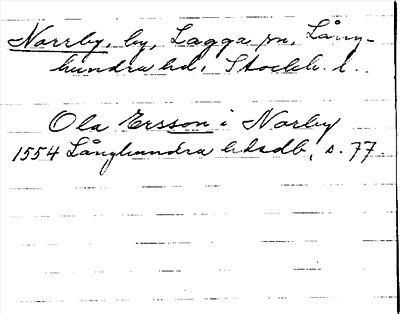 Norrby, by, Lagga sn, Lång-
hundra hd, Stockh. l.
Ola Ersson i Norby
1554 Långhundra hdsdb, s. 77.